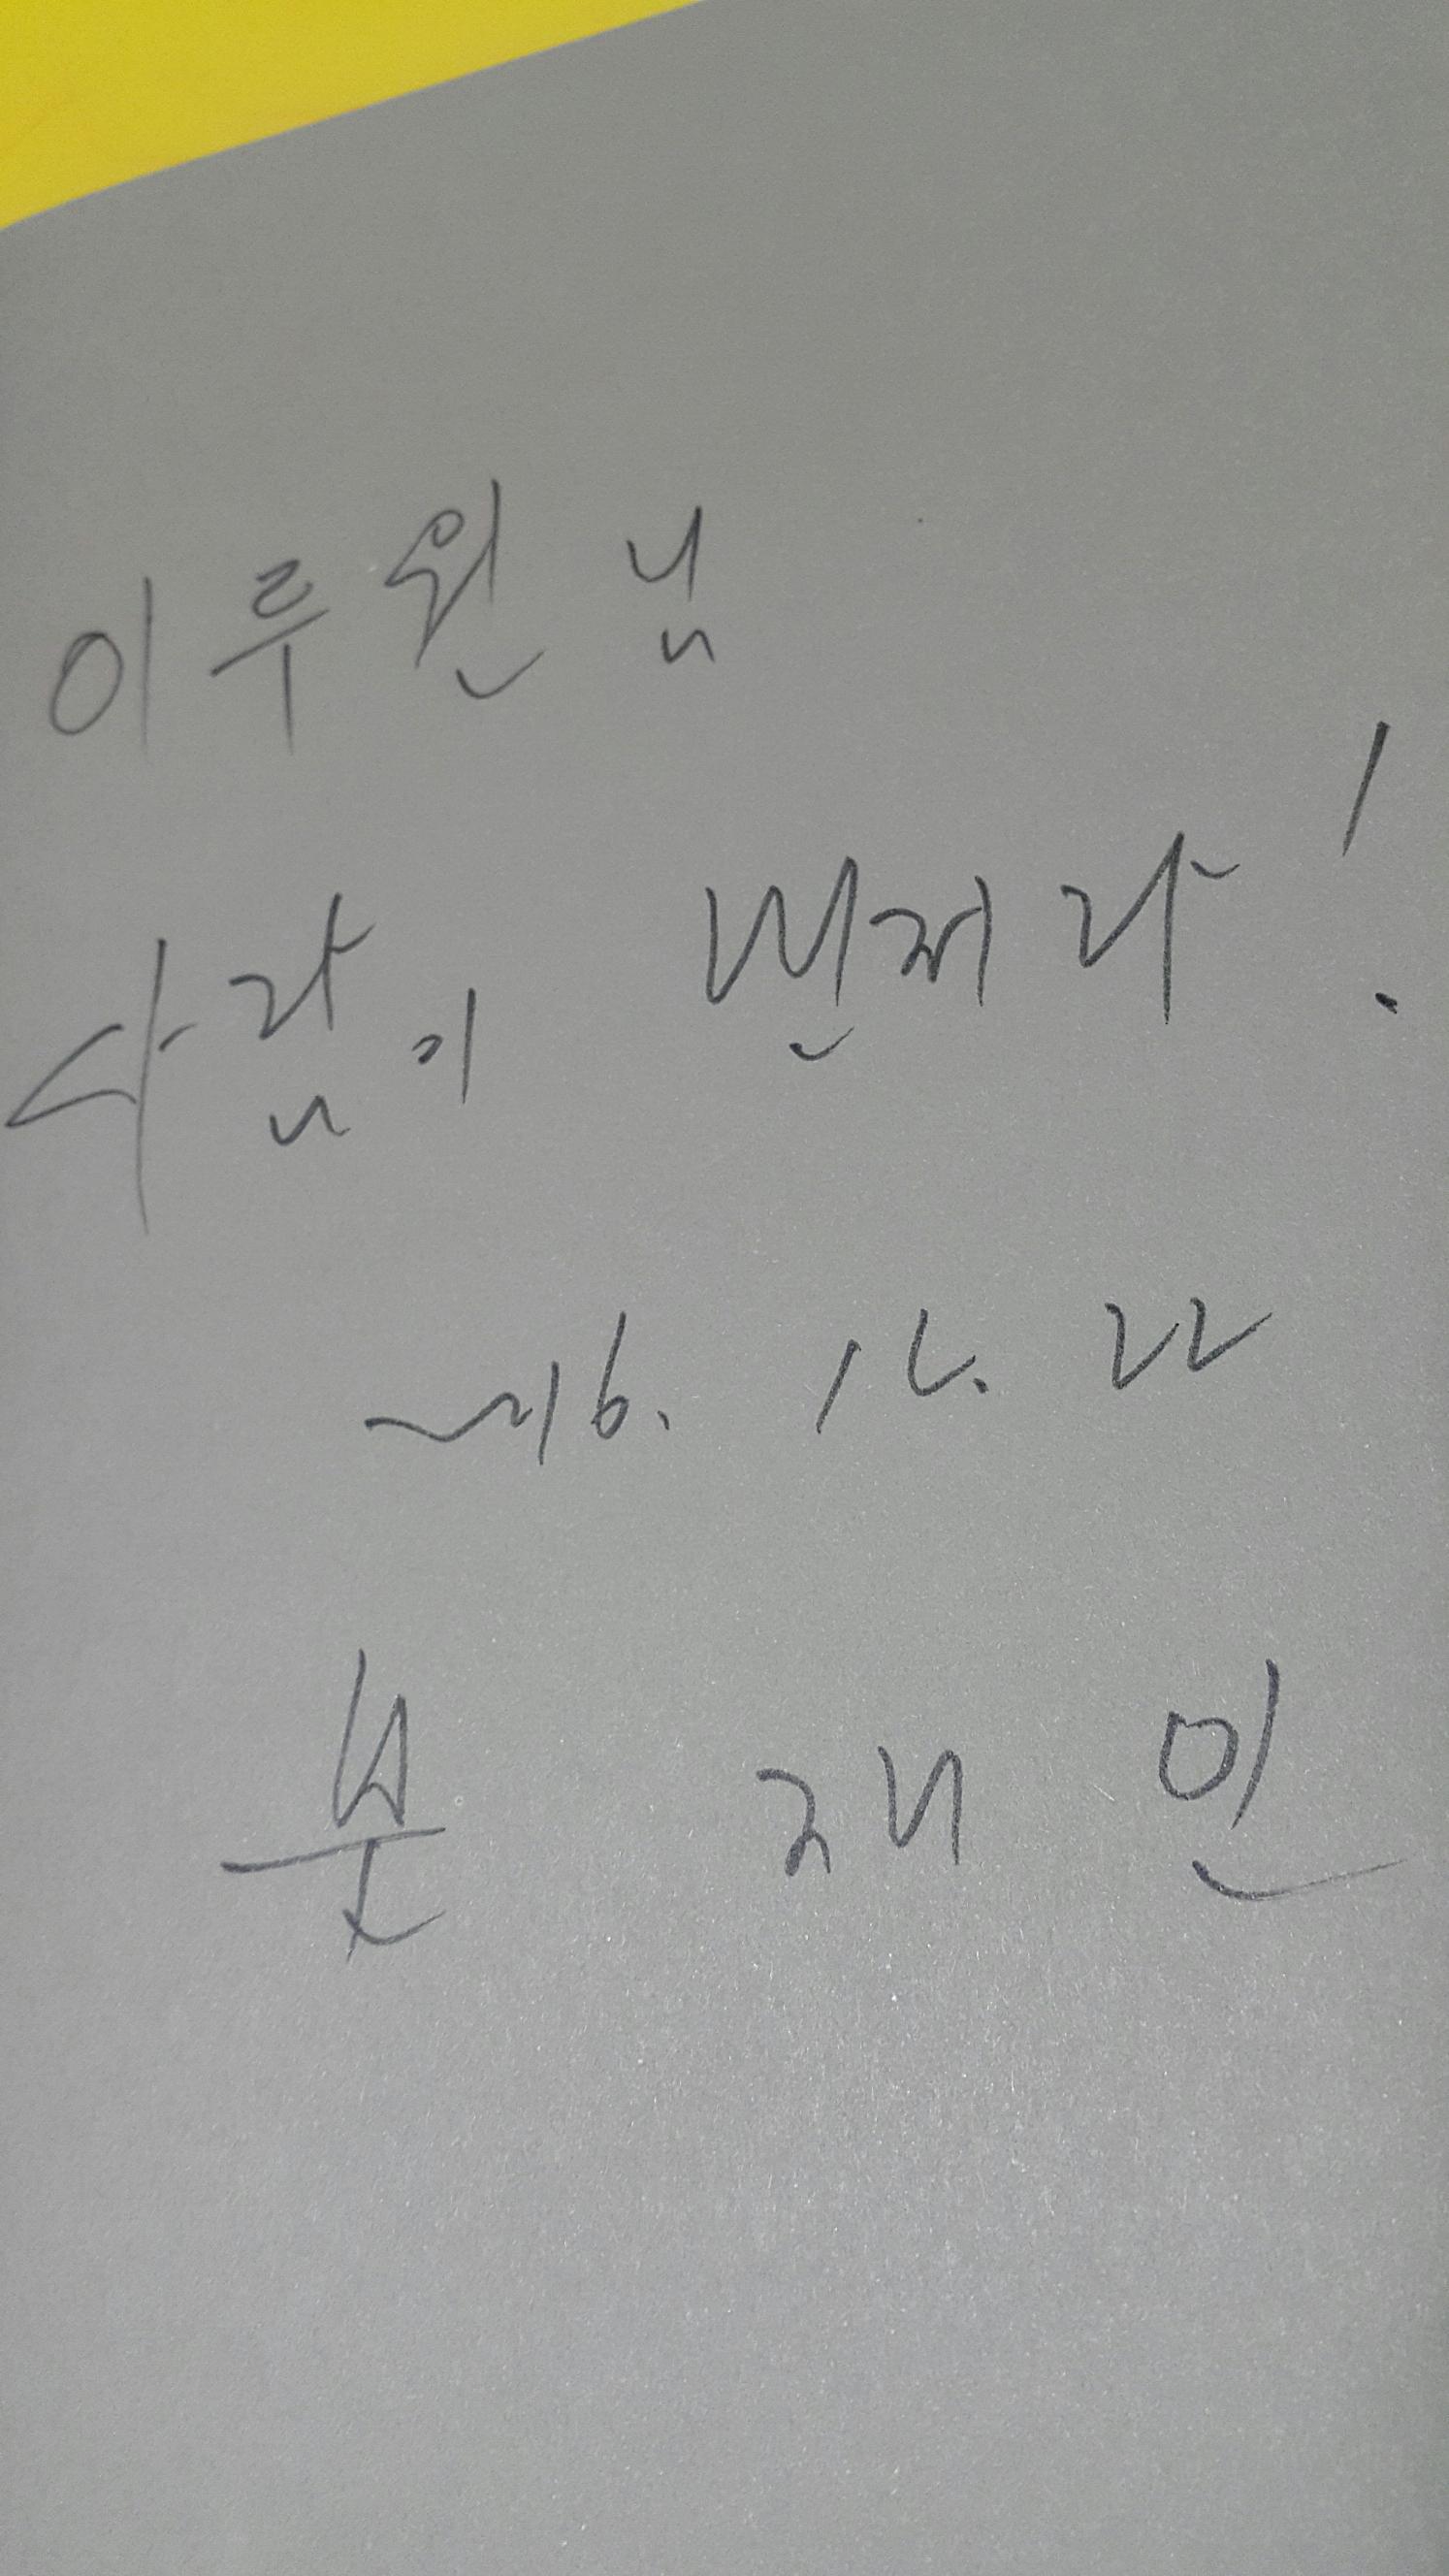 이루원님
사람이 먼저다!
2016. 12. 22
문재인